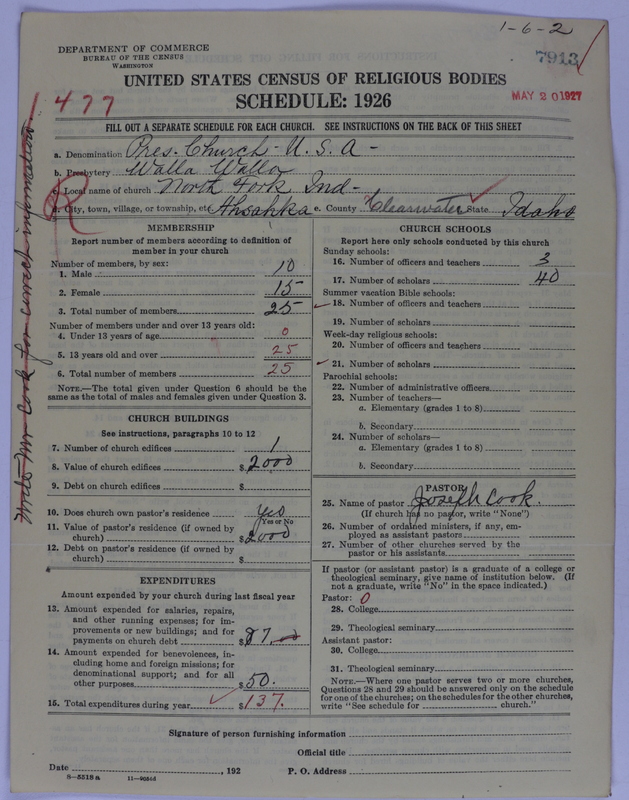 1-6-2
7913
DEPARTMENT OF COMMERCE
BUREAU OF THE CENSUS
WASHINGTON
UNITED STATES CENSUS OF RELIGIOUS BODIES
SCHEDULE: 1926
MAY 20 1927
477
FILL OUT A SEPARATE SCHEDULE FOR EACH CHURCH. SEE INSTRUCTIONS ON THE BACK OF THIS SHEET
a. Denomination Pres. Church - U.S.A -
b. Presbytery Walla Walla
c. Local name of church North Fork Ind -
R
d. City, town, village, or township, etc. Ahsahka e. County Clearwater State Idaho
Write Mr Cook for correct information
MEMBERSHIP
Report number of members according to definition of
member in your church
Number of members, by sex:
1. Male 10
2. Female 15
3. Total number of members 25
Number of members under and over 13 years old:
4. Under 13 years of age 0
5. 13 years old and over 25
6. Total number of members 25
NOTE.—The total given under Question 6 should be the
same as the total of males and females given under Question 3.
CHURCH BUILDINGS
See instructions, paragraphs 10 to 12
7. Number of church edifices 1
8. Value of church edifices $2000
9. Debt on church edifices $
10. Does church own pastor's residence yes
Yes or No
11. Value of pastor's residence (if owned by
church) $2000
12. Debt on pastor's residence (if owned by
church) $
EXPENDITURES
Amount expended by your church during last fiscal year
13. Amount expended for salaries, repairs,
and other running expenses; for im-
provements or new buildings; and for
payments on church debt $87.00
14. Amount expended for benevolences, in-
cluding home and foreign missions; for
denominational support; and for all
other purposes $50.
15. Total expenditures during year $137.
CHURCH SCHOOLS
Report here only schools conducted by this church
Sunday schools:
16. Number of officers and teachers 3
17. Number of scholars 40
Summer vacation Bible schools:
18. Number of officers and teachers
19. Number of scholars
Week-day religious schools:
20. Number of officers and teachers
21. Number of scholars
Parochial schools:
22. Number of administrative officers
23. Number of teachers—
a. Elementary (grades 1 to 8)
b. Secondary
24. Number of scholars—
a. Elementary (grades 1 to 8)
b. Secondary
PASTOR
25. Name of pastor Joseph Cook.
(If church has no pastor, write "None")
26. Number of ordained ministers, if any, em-
ployed as assistant pastors
27. Number of other churches served by the
pastor or his assistants
If pastor (or assistant pastor) is a graduate of a college or
theological seminary, give name of institution below. (If
not a graduate, write "No" in the space indicated.)
Pastor: 0
28. College
29. Theological seminary
Assistant pastor:
30. College
31. Theological seminary
NOTE.—Where one pastor serves two or more churches,
Questions 28 and 29 should be answered only on the schedule
for one of the churches; on the schedules for the other churches,
write "See schedule for church."
Signature of person furnishing information
Official title
Date , 192 P. O. Address
8—5518a